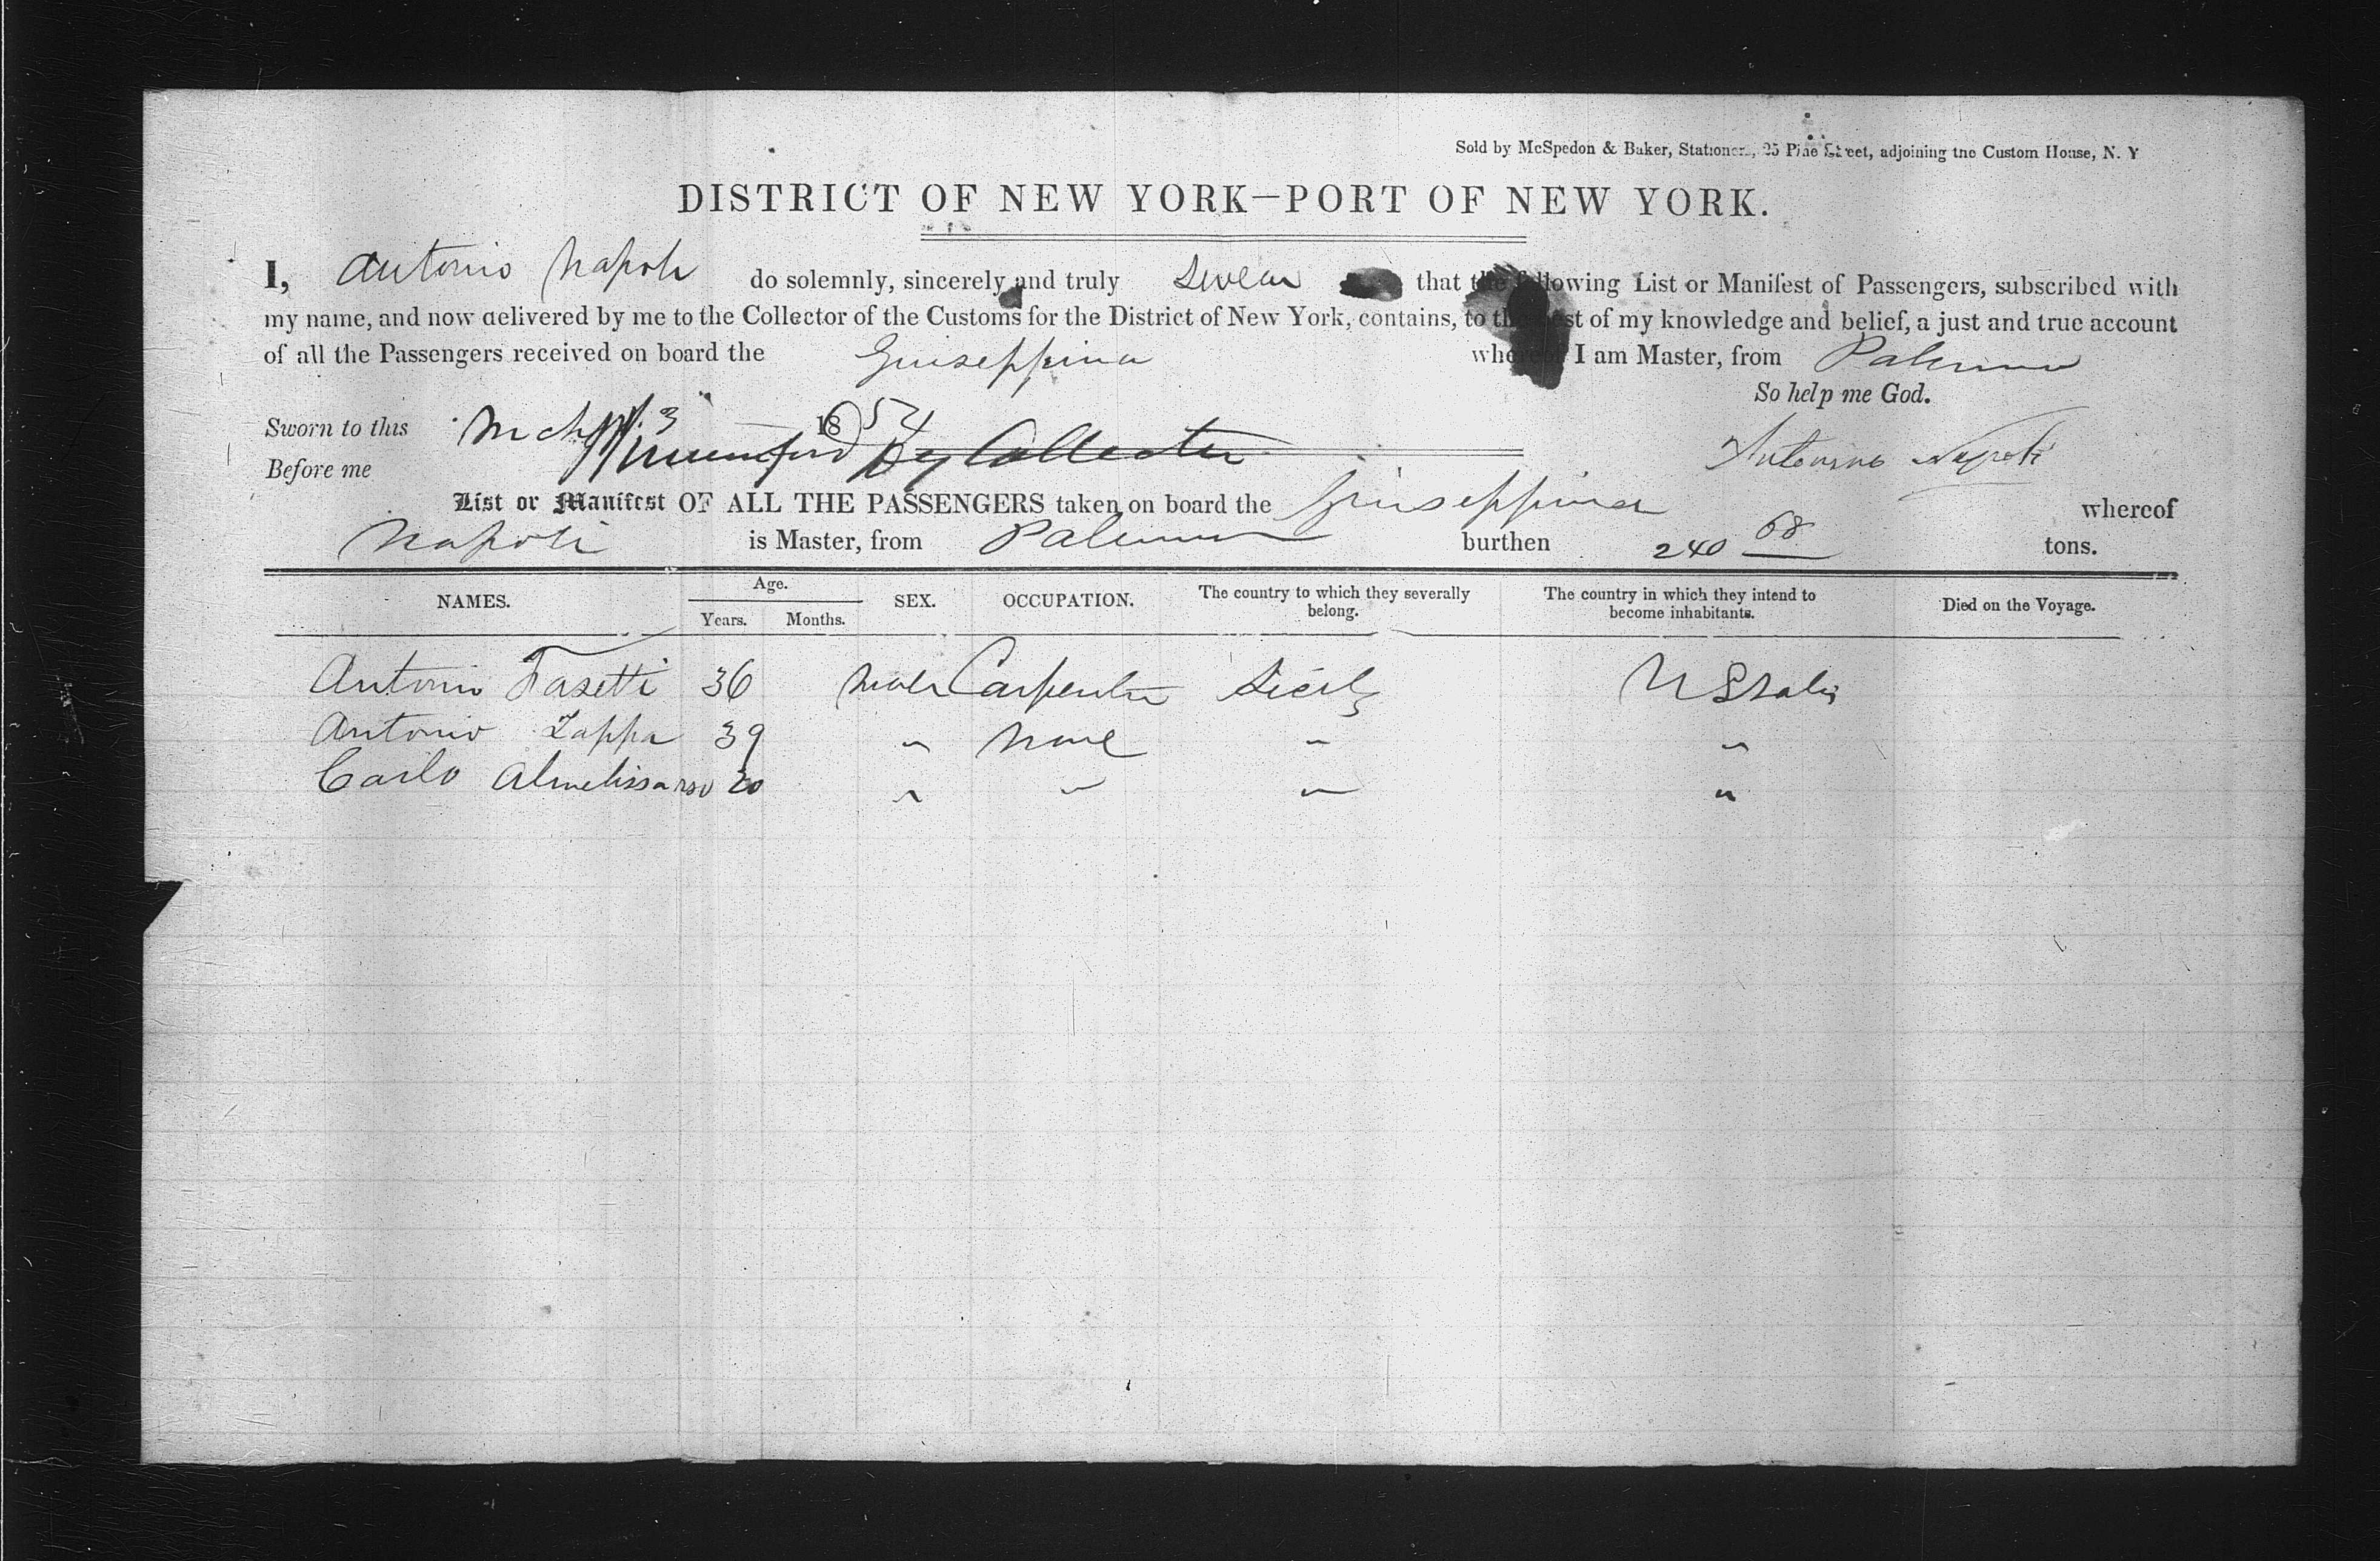 Sold by McSpedon & Baker, Stationers, 25 Pine Street, adjoining the Custom House, N. Y
DISTRICT OF NEW YORK—PORT OF NEW YORK.
I, Antonio Napoli do solemnly, sincerely and truly swear that the following List or Manifest of Passengers, subscribed with
my name, and now delivered by me to the Collector of the Customs for the District of New York, contains, to the best of my knowledge and belief, a just and true account
of all the Passengers received on board the Giuseppina whereof I am Master, from Palermo
So help me God.
Sworn to this Mch 3 1854
Before me Dey Collector Antonino Napoli
List or Manifest OF ALL THE PASSENGERS taken on board the Giuseppina whereof
Napoli is Master, from Palermo burthen 240 68 tons.
NAMES. Age. SEX. OCCUPATION. The country to which they severally belong. The country in which they intend to become inhabitants. Died on the Voyage.
Years. Months.
Antonio Fasetti 36 Male Carpenter Sicily U States
Antonio Zappa 39 " None " "
Carlo 20 " " " "